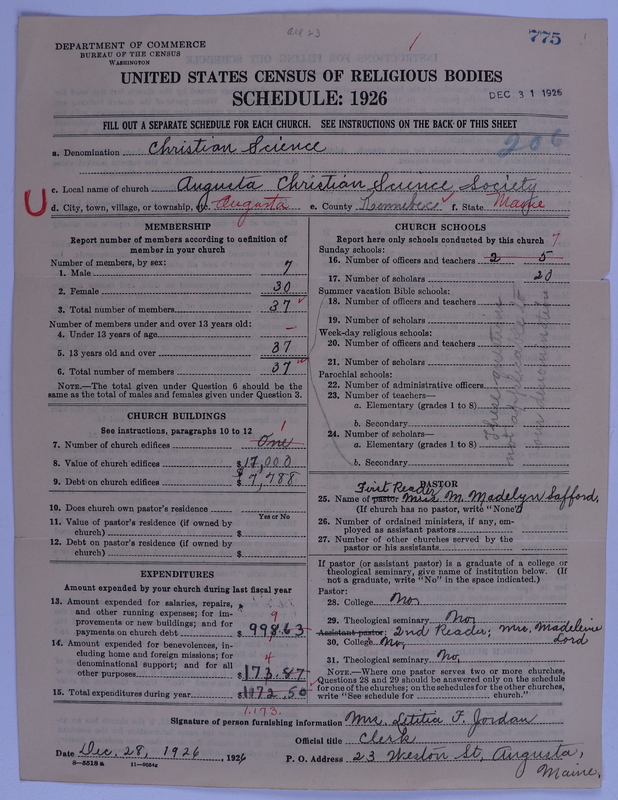 775
DEPARTMENT OF COMMERCE
BUREAU OF THE CENSUS
WASHINGTON
UNITED STATES CENSUS OF RELIGIOUS BODIES
SCHEDULE: 1926
DEC 31 1926
FILL OUT A SEPARATE SCHEDULE FOR EACH CHURCH. SEE INSTRUCTIONS ON THE BACK OF THIS SHEET
206
a. Denomination Christian Science
c. Local name of church Augusta Christian Science Society
d. City, town, village, or township, etc. Augusta e. County Kennebec f. State Maine
MEMBERSHIP
Report number of members according to definition of
member in your church
Number of members, by sex:
1. Male 7
2. Female 30
3. Total number of members 37
Number of members under and over 13 years old:
4. Under 13 years of age —
5. 13 years old and over 37
6. Total number of members 37
NOTE.—The total given under Question 6 should be the
same as the total of males and females given under Question 3.
CHURCH BUILDINGS
See instructions, paragraphs 10 to 12
7. Number of church edifices One 1
8. Value of church edifices $17,000
9. Debt on church edifices $7,788
10. Does church own pastor's residence
Yes or No
11. Value of pastor's residence (if owned by
church) $
12. Debt on pastor's residence (if owned by
church) $
EXPENDITURES
Amount expended by your church during last fiscal year
13. Amount expended for salaries, repairs,
and other running expenses; for im-
provements or new buildings; and for
payments on church debt $ 998.63
9
14. Amount expended for benevolences, in-
cluding home and foreign missions; for
denominational support; and for all
other purposes $173.87
4
15. Total expenditures during year $1172.50
1,173.
CHURCH SCHOOLS
Report here only schools conducted by this church
Sunday schools:
16. Number of officers and teachers 2 5
17. Number of scholars 20
Summer vacation Bible schools:
18. Number of officers and teachers
19. Number of scholars
Week-day religious schools:
20. Number of officers and teachers
21. Number of scholars
Parochial schools:
22. Number of administrative officers
23. Number of teachers—
a. Elementary (grades 1 to 8)
b. Secondary
24. Number of scholars—
a. Elementary (grades 1 to 8)
b. Secondary
These questions
not applicable to
our denomination
PASTOR
First Reader
25. Name of pastor Mrs. M. Madelyn Safford,
(If church has no pastor, write "None")
26. Number of ordained ministers, if any, em-
ployed as assistant pastors
27. Number of other churches served by the
pastor or his assistants
If pastor (or assistant pastor) is a graduate of a college or
theological seminary, give name of institution below. (If
not a graduate, write "No" in the space indicated.)
Pastor:
28. College No,
29. Theological seminary No,
Assistant pastor: 2nd Reader; Mrs. Madeline
Lord
30. College No,
31. Theological seminary No,
NOTE.—Where one pastor serves two or more churches,
Questions 28 and 29 should be answered only on the schedule
for one of the churches; on the schedules for the other churches,
write "See schedule for church."
Signature of person furnishing information Mrs. Letitia F. Jordan
Official title Clerk
Date Dec. 28, 1926, 1926 P. O. Address 23 Weston St, Augusta,
Maine.
8—5518 a 11—9554z